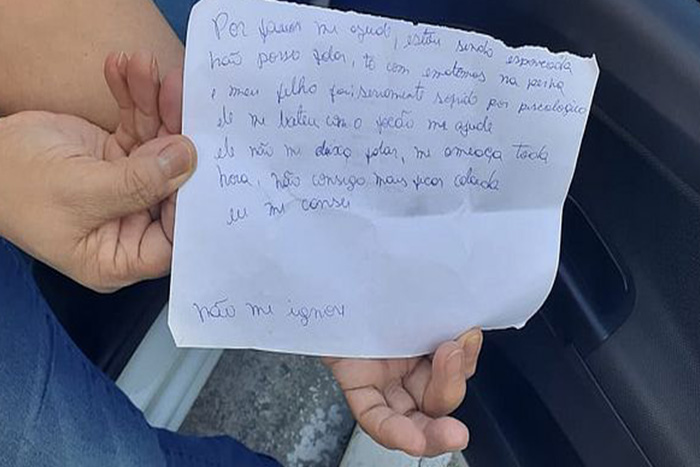 Por favor me ajude, estou sendo espancada
não posso falar, to com ematomas na perna
e meu filho foi seriamente sofrido por piscologico
ele me bateu com o facão me ajude
ele não me deixa falar, me ameaça toda
hora, não consigo mais ficar calada
eu me cansei
não me ignore